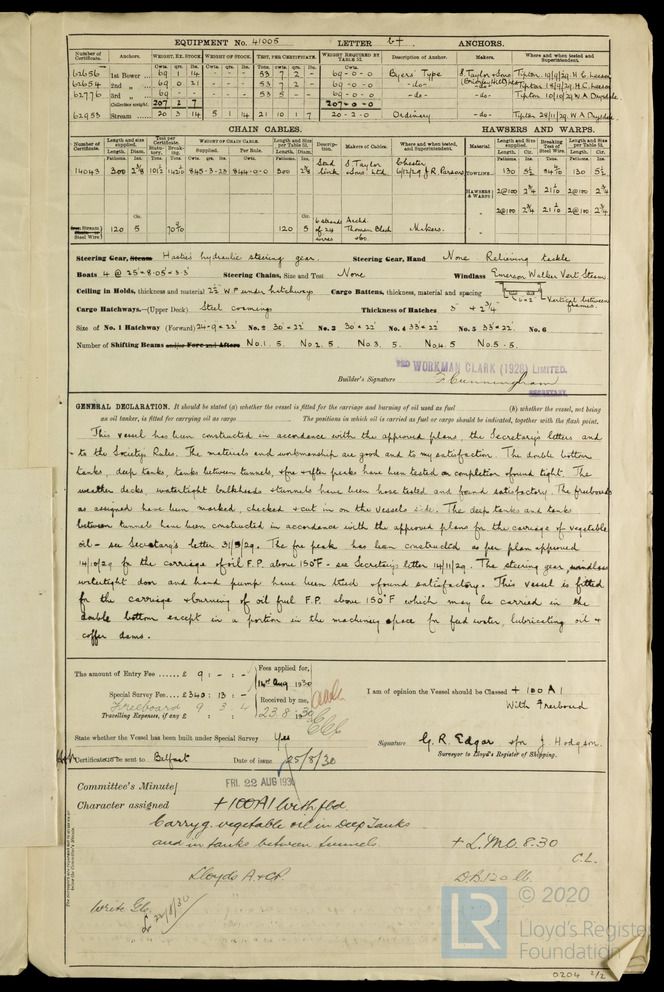 EQUIPMENT No. 41005 LETTER b+ ANCHORS.
Number of Certificate. Anchors. WEIGHT, EX. STOCK. WEIGHT OF STOCK. TEST, PER CERTIFICATE. WEIGHT REQUIRED BY TABLE 53. Description of Anchor. Makers. Where and when tested and Superintendent.
Cwts. qrs. lbs. Cwts. qrs. lbs. Tons. cwts. qrs. lbs. Cwts.
62656 1st Bower 69 1 14 53 7 2 - 69-0-0 Byers' Type S. Taylor & Sons Tipton 19/9/29 H.C.
62654 2nd " 69 0 21 53 7 2 - 69-0-0 -do- (Brierley Hill) Tipton 18/9/29 H.C.
62770 3rd " 69 53 5 - - 69-0-0 -do- -do- Tipton 10/10/29 W.A. Drysdale
Collective weight. 207 2 7 207-0-0
62953 Stream 20 3 14 5 1 14 21 10 1 7 20-2-0 Ordinary -do- Tipton 28/11/29 W.A. Drysdale
CHAIN CABLES. HAWSERS AND WARPS.
Number of Certificate. Length and size supplied. Test per Certificate. WEIGHT OF CHAIN CABLE. Length and Size per Table 53. Description. Makers of Cables. Where and when tested, and Superintendent. Material Length and size supplied. Breaking Test of Steel Wire. Length and Size per Table 53.
14043 300 2 5/8 845-3-25 844-0-0 300 Stud link S. Taylor & Sons Ltd Chester 6/12/29 J.R. Parsons TOWLINE 130 5½ 130 5½
HAWSERS & WARPS 2@100 2¾ 2@100 2¾
" 2@100 2¾ 2@100 2¾
Steel Wire 120 5 120 5 6 strands of 24 wires Archd. Thomson Black &Co. Makers.
Steering Gear, Steam Hastie's hydraulic steering gear. Steering Gear, Hand None Relieving tackle
Boats 4 @ 25'×8.05×3.3' Steering Chains, Size and Test None Windlass Emerson Walker Vert Steam.
Ceiling in Holds, thickness and material 2½ W.P under hatchways Cargo Battens, thickness, material and spacing 6×2 Vertical between frames.
Cargo Hatchways.—(Upper Deck) Steel coamings Thickness of Hatches 3" + 2¾"
Size of No. 1 Hatchway (Forward) 24-9×22' No. 2 30'×22' No. 3 30'×22' No. 4 33'×22' No. 5 33'×22' No. 6
Number of Shifting Beams and/or Fore and Afters No.1. 5. No 2. 5. No 3. 5. No 4. 5 No. 5 - 5.
WORKMAN CLARK (1928) LIMITED.
Builder's Signature F. Cunningham
SECRETARY.
GENERAL DECLARATION. It should be stated (a) whether the vessel is fitted for the carriage and burning of oil used as fuel (b) whether the vessel, not being
an oil tanker, is fitted for carrying oil as cargo The positions in which oil is carried as fuel or cargo should be indicated, together with the flash point.
This vessel has been constructed in accordance with the approved plans, the Secretary's letters and
to the Society's Rules. The materials and workmanship are good and to my satisfaction. The double bottom
tanks, deep tanks, tanks between tunnels, & fore & after peaks have been tested on completion & found tight. The
weather decks, watertight bulkheads & tunnels have been hose tested and found satisfactory. The freeboards
as assigned have been marked, checked & cut in on the vessels side. The deep tanks and tanks
between tunnels have been constructed in accordance with the approved plans for the carriage of vegetable
oil - see Secretary's letter 31/5/29. The fore peak has been constructed as per plan approved
14/10/29 for the carriage of oil F.P. above 150°F - see Secretary's letter 14/11/29. The steering gear, windlass
watertight door and hand pump have been tried & found satisfactory. This vessel is fitted
for the carriage & burning of oil fuel F.P. above 150°F which may be carried in the
double bottom except in a portion in the machinery space for feed water, lubricating oil &
coffer dams.
The amount of Entry Fee £ 9 : - : -
Fees applied for, 14th Aug 1930
Special Survey Fee £340 : 13 : -
Freeboard 9 3 4
Received by me, 23.8.1930
Travelling Expenses, if any £ : :
I am of opinion the Vessel should be Classed + 100 A1
With Freeboard
State whether the Vessel has been built under Special Survey Yes
Signature G. R. Edgar for J. Hodgson.
Surveyor to Lloyd's Register of Shipping.
Certificate to be sent to Belfast Date of issue 25/8/30
Committee's Minute FRI. 22 AUG 1930
Character assigned +100A1 With fbd
Carryg. vegetable oil in Deep Tanks
and in tanks between tunnels.
+ L.M.C. 8.30
C.L.
Lloyds A & CP.
D.B. 120 lb.
Write Gb.
22/8/30
© 2020
LR Lloyd's Register
Foundation
0204 2/2